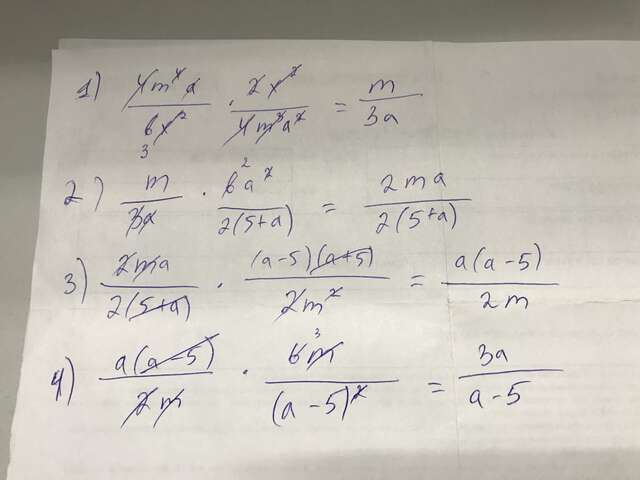 1) 4m⁴a/6x² 3 · 2x²/4m³a² = m/3a
2) m/3a · 6a² 2/2(5+a) = 2ma/2(5+a)
3) 2ma/2(5+a) · (a-5)(a+5)/2m² = a(a-5)/2m
4) a(a-5)/2m · 6m 3/(a-5)² = 3a/a-5